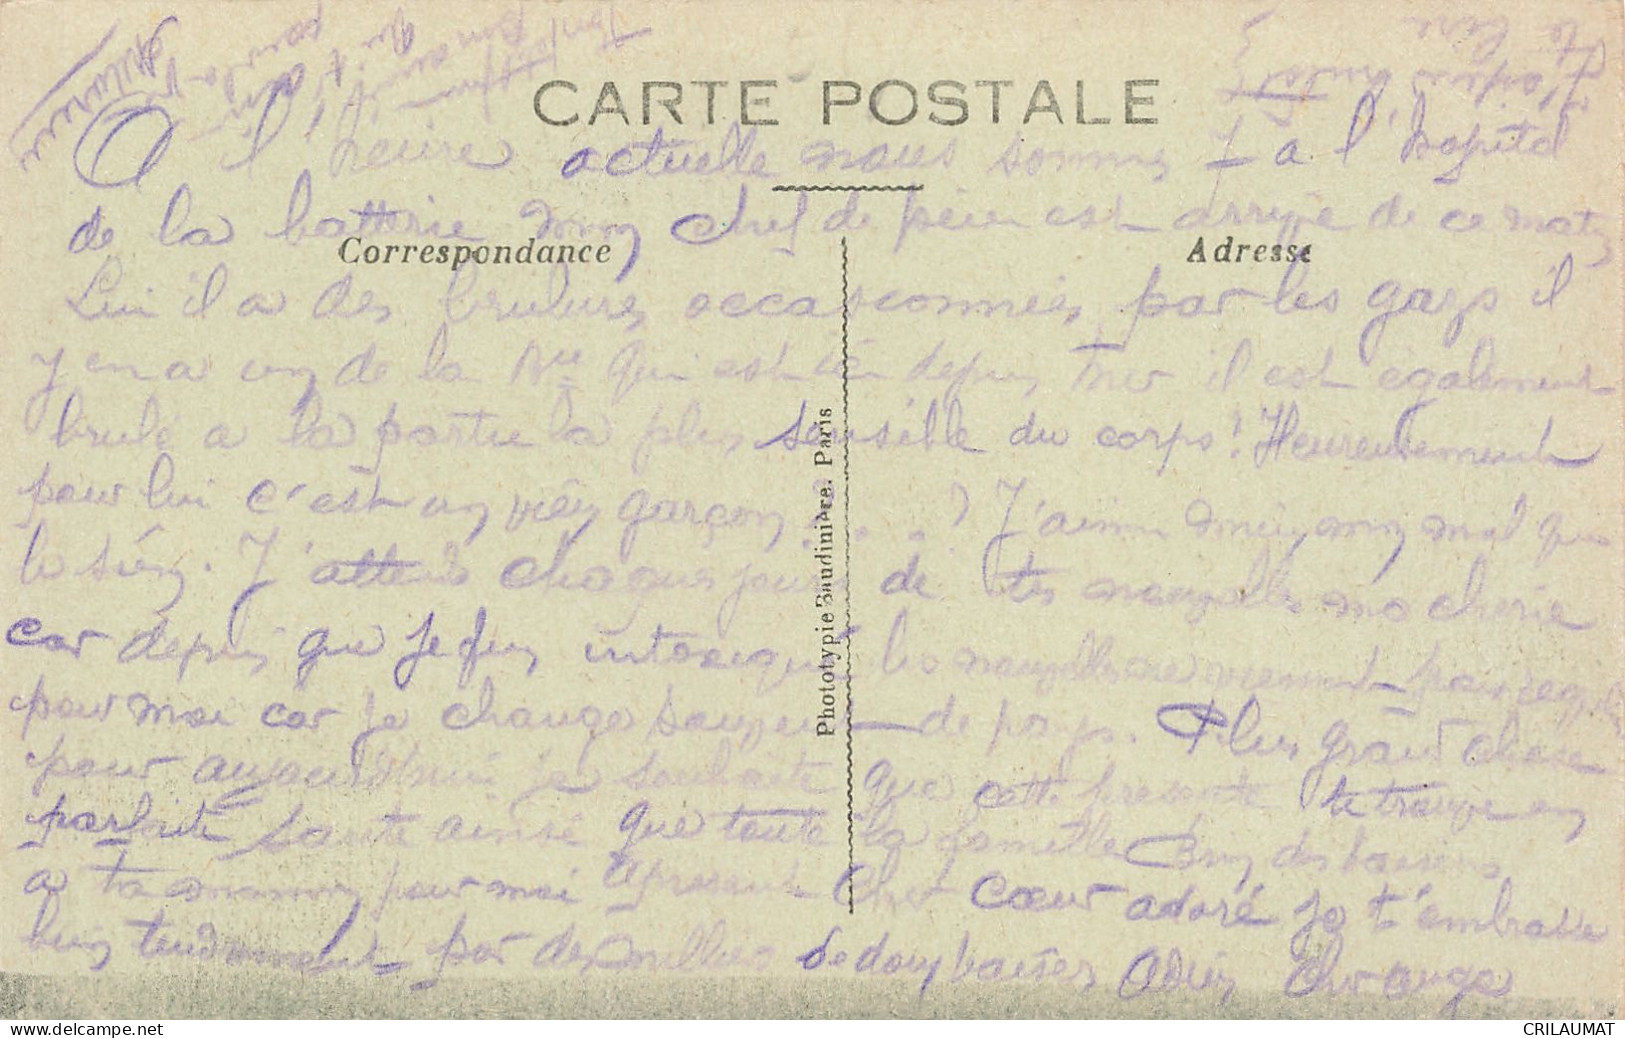 CARTE POSTALE
A l'heure actuelle nous sommes 7 a l'hopital
de la batterie mon chef de pièce est arrivé de ce matin
Correspondance
Adresse
Lui il a des brulures occasionnées par les gazs il
y en a un de la Bie qui est ici depuis hier il est également
brulé a la partie la plus sensible du corps! Heureusement
pour lui c'est un vieux garçon . . . . ? J'aime mieux mon mal que
le sien. J'attends chaque jour de tes nouvelles ma cherie
car depuis que je fus intoxiqué les nouvelles ne viennent pas
pour moi car je change souvent de pays. Plus grand chose
pour aujourd'hui je souhaite que cette presente te trouve en
parfaite santé ainsi que toute la famille Bien des baisers
a ta maman pour moi a present Cher cœur adoré je t'embrasse
bien tendrement par des milliers de doux baisers Adieu Cher ange
Phototypie Baudinière. Paris
CRILAUMAT